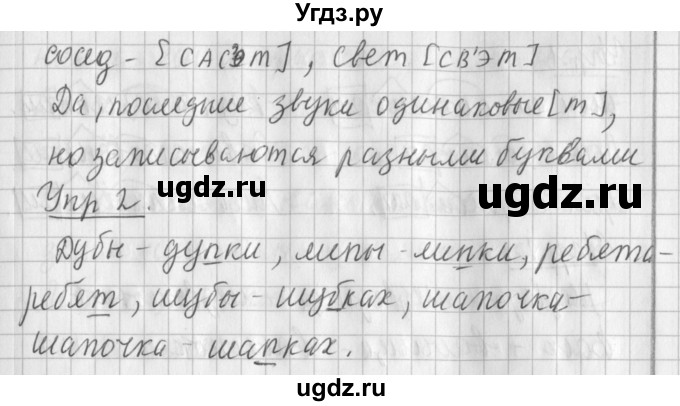 Угдз.ру
сосед - [САС'ЭТ], свет [СВ'ЭТ]
Да, последние звуки одинаковые [т],
но записываются разными буквами
ugdz.ru ugdz.ru
Упр 2.
Дубы - дупки, липы - липки, ребята-
ребят, шубы - шубках, шапочка-
шапочка - шапках.
ugdz.ru ugdz.ru
ugdz.ru